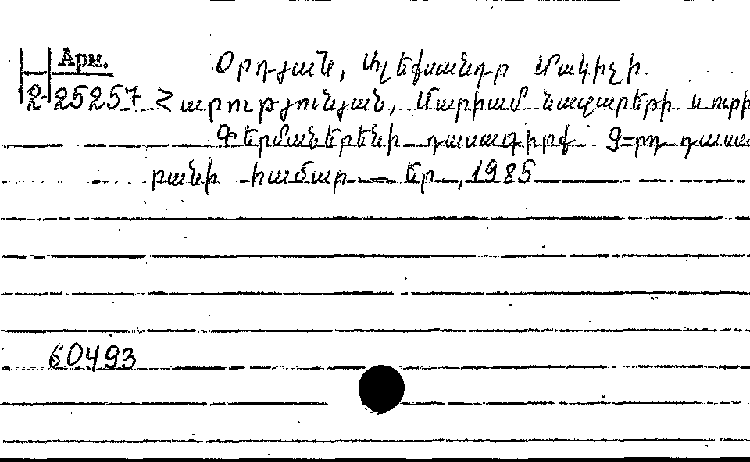 Արм.
Օրդյան, Ալեքսանդր Մակիչի
2 25257 Հարությունյան, Մարիամ Նազարեթի և ուրի
Գերմաներենի դասագիրք 9-րդ դասա
րանի համար — Եր., 1985
60493